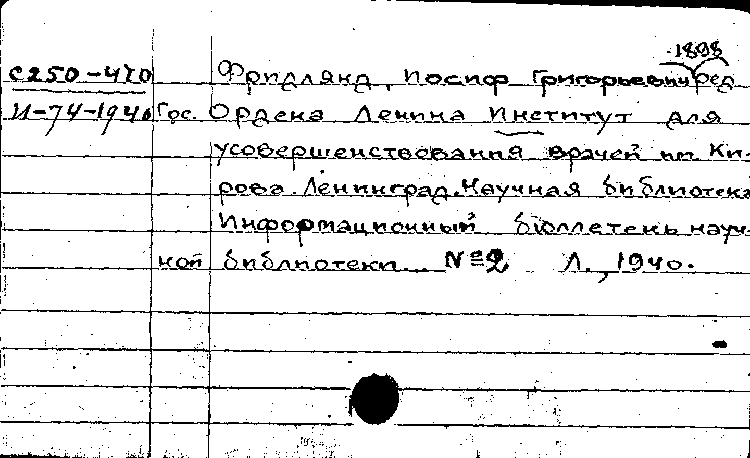 1898
с250-470 Фридлянд, Иосиф Григорьевич ред
И-74-1940 Гос. Ордена Ленина Институт для
усовершенствования врачей им. Ки-
рова. Ленинград. Научная библиотека
Информационный бюллетень науч-
ной библиотеки №2 Л., 1940.